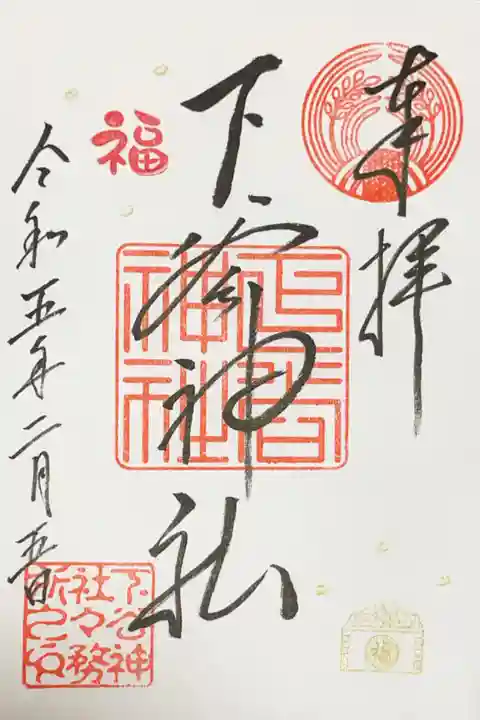 奉拝
下谷神社
福
令和五年二月五日
下谷神
社々務
所之印
福